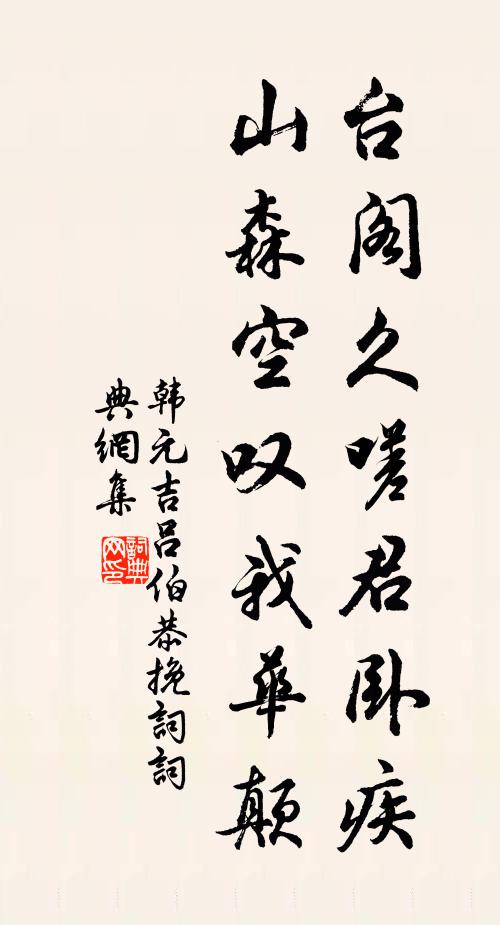 台阁久嗟君卧疾
山森空叹我華颠
韩元吉吕伯恭挽詞詞
典網集
詞典
网印